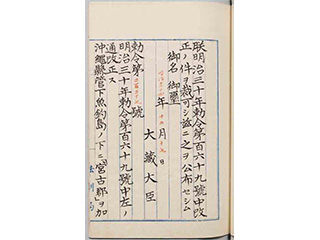 朕明治三十年勅令第百六十九號中改
正ノ件ヲ裁可シ茲ニ之ヲ公布セシム
御名 御璽
年 月 日
大藏大臣
勅令第 號
明治三十年勅令第百六十九號中左ノ
通改正ス
沖繩縣管下魚釣島ノ下ニ「宮古郡」ヲ加
法制局